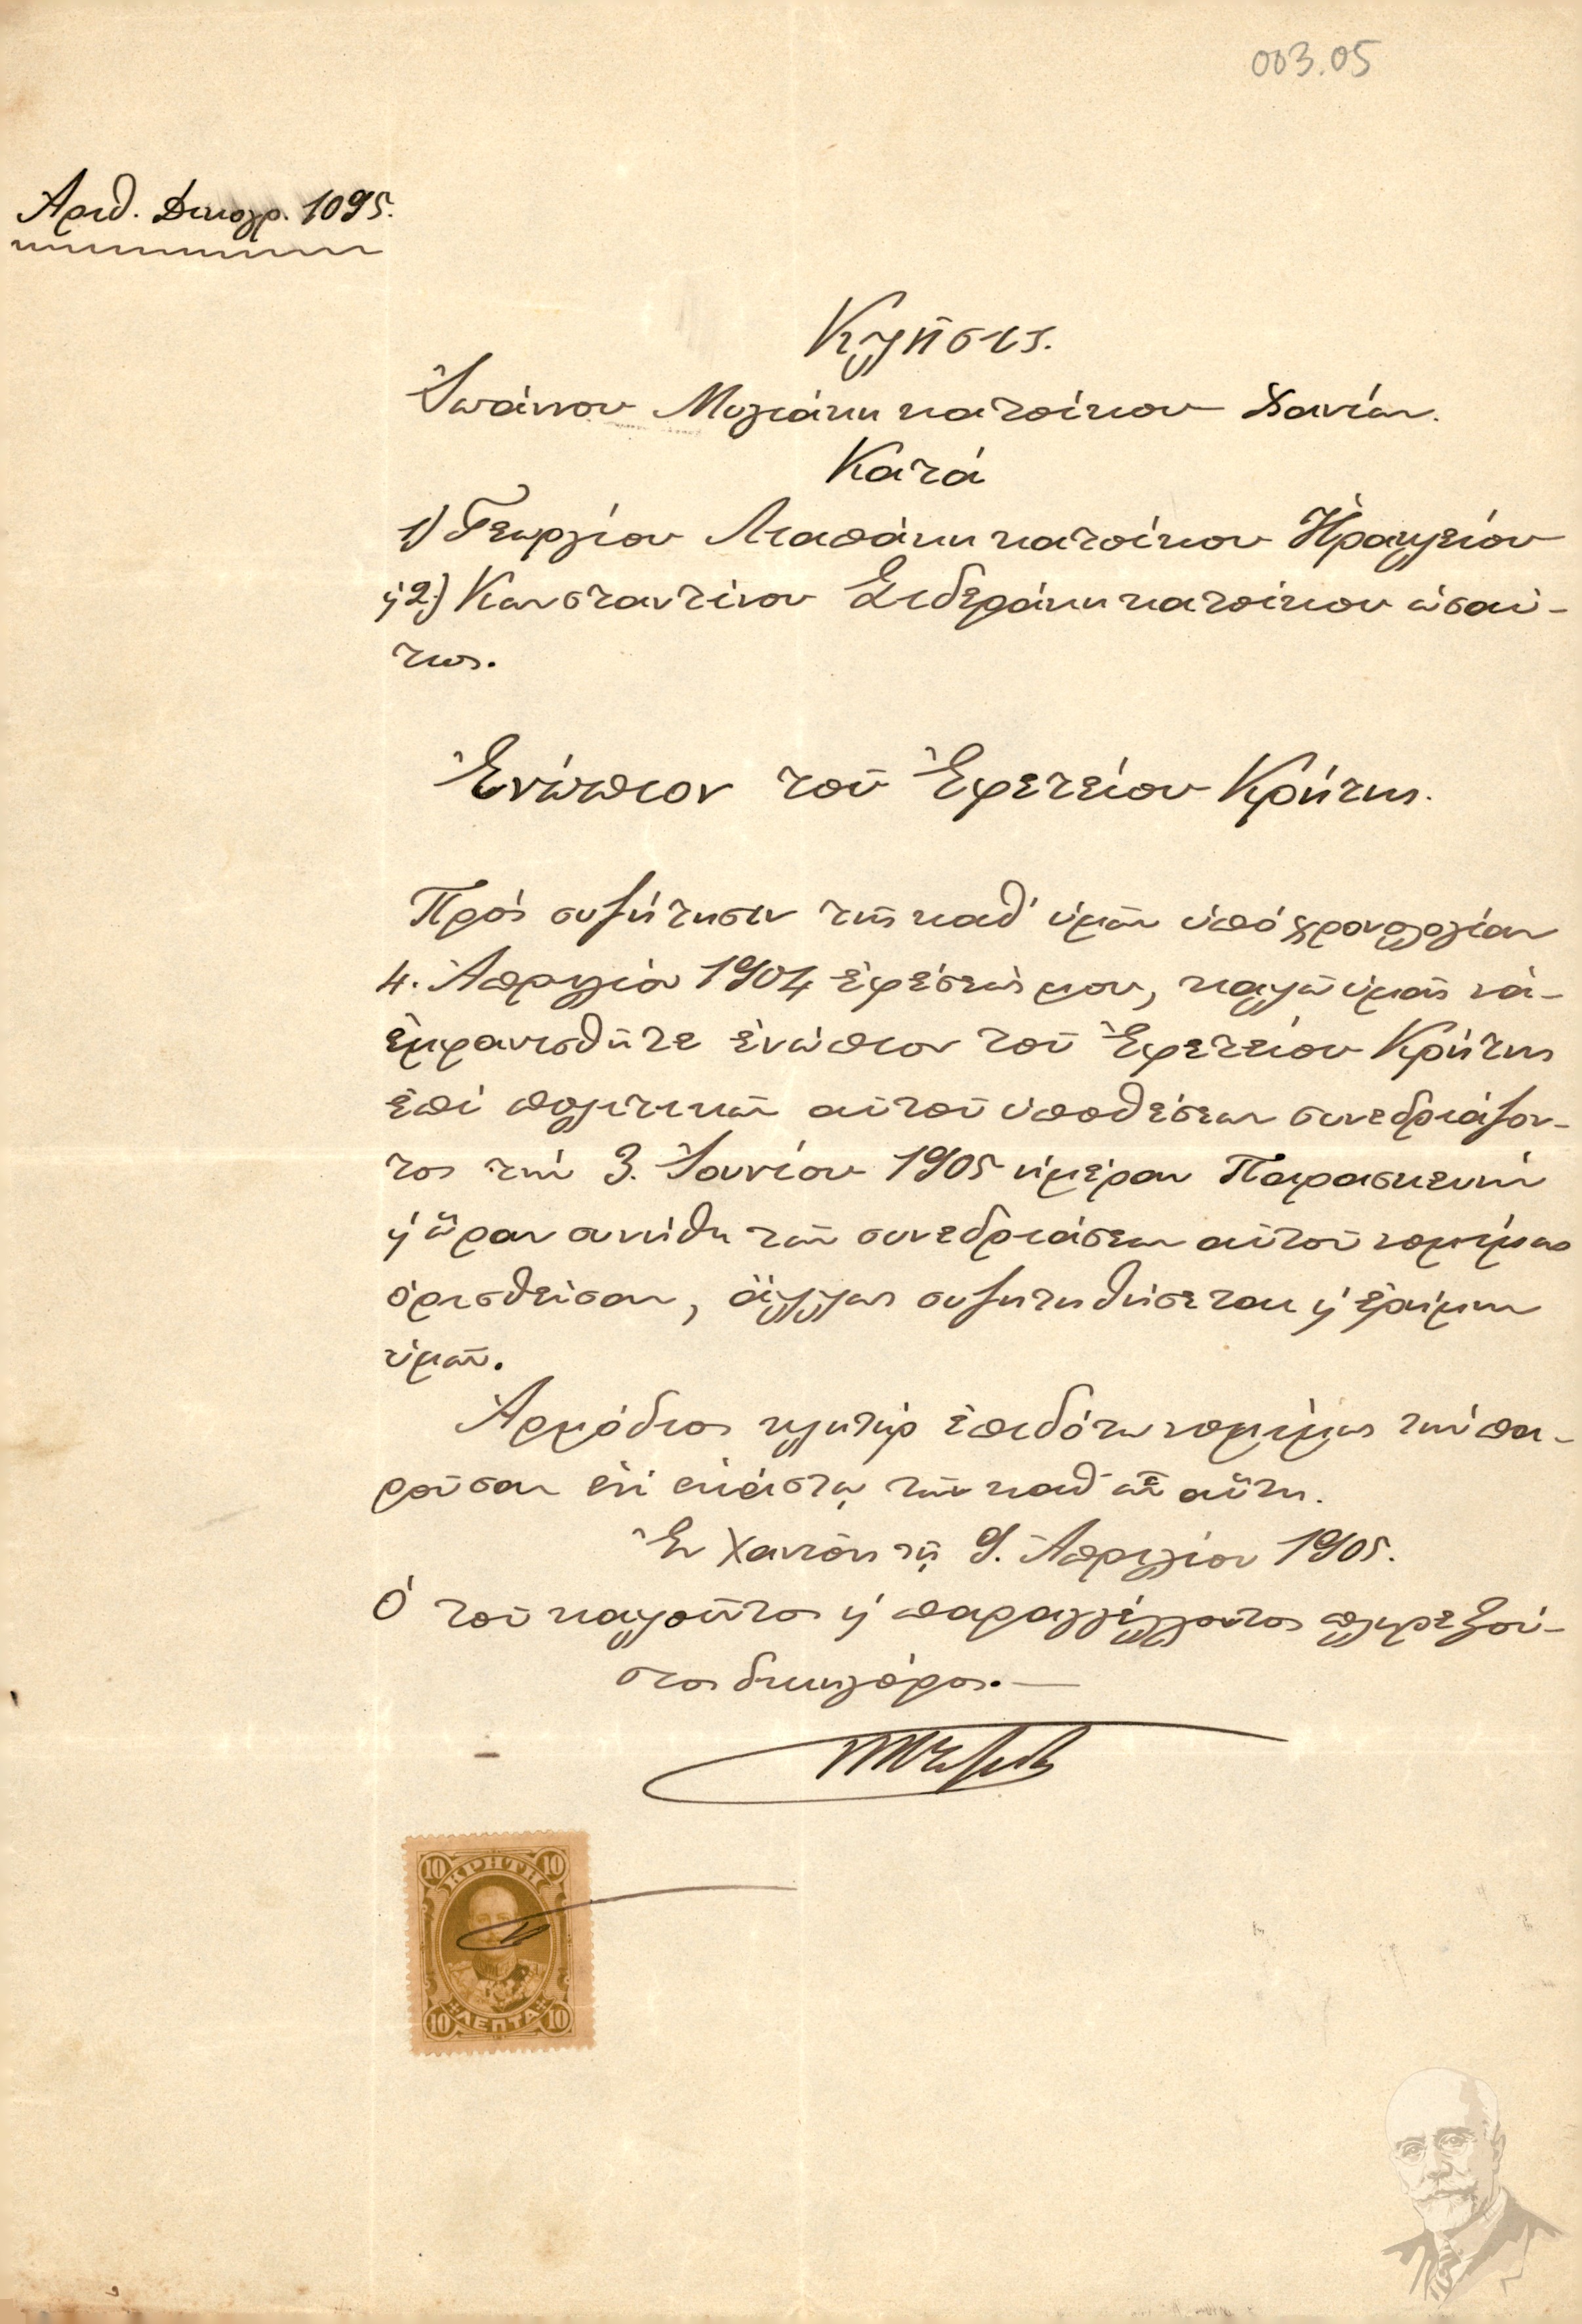 003.05
Ἀριθ. Δικογρ. 1095.
Κλῆσις.
Ἰωάννου Μυλωνάκη κατοίκου Χανίων.
Κατά
1) Γεωργίου Λιαπάκη κατοίκου Ἡρακλείου
ἢ 2) Κωνσταντίνου Σιδεράκη κατοίκου ὡσαύ-
τως.
Ἐνώπιον τοῦ Ἐφετείου Κρήτης.
Πρὸς συζήτησιν τῆς καθ' ὑμῶν ὑπὸ χρονολογίαν
4. Ἀπριλίου 1904 ἐφέσεώς μου, καλῶ ὑμᾶς νὰ
ἐμφανισθῆτε ἐνώπιον τοῦ Ἐφετείου Κρήτης
ἐπὶ πολιτικῶν αὐτοῦ ὑποθέσεων συνεδριάζον-
τος τὴν 3. Ἰουνίου 1905 ἡμέραν Παρασκευὴν
ἢ ὥραν συνήθη τῶν συνεδριάσεων αὐτοῦ νομίμως
ὁρισθεῖσαν, ἄλλως συζητηθήσεται ἢ ἐρήμην
ὑμῶν.
Ἁρμόδιος κλητὴρ ἐπιδότω νομίμως τὴν πα-
ροῦσαν ἑνὶ ἑκάστῳ τῶν καθ' ὧν αὕτη.
Ἐν Χανίοις τῇ 9. Ἀπριλίου 1905.
Ὁ τοῦ καλοῦντος ἢ παραγγέλλοντος πληρεξού-
σιος δικηγόρος.—
10 ΚΡΗΤΗ 10
10 ΛΕΠΤΑ 10